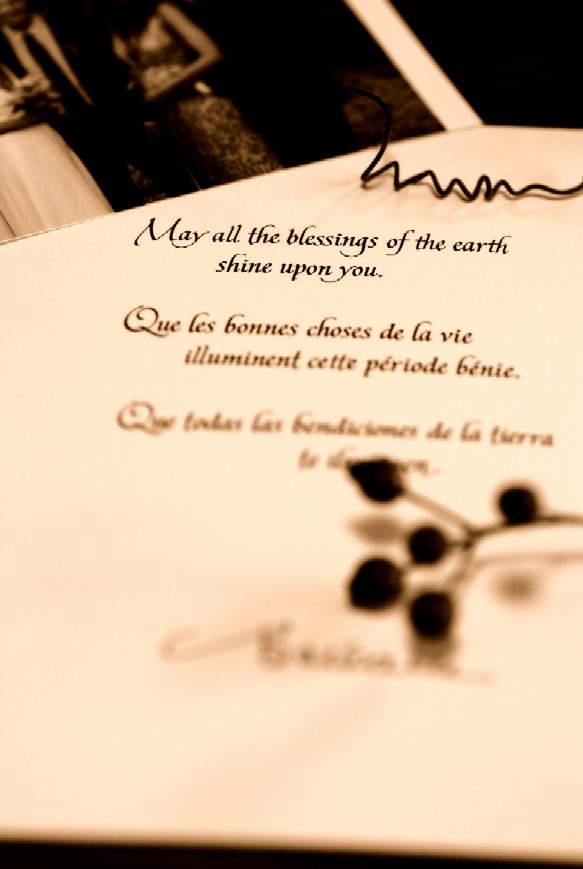 May all the blessings of the earth
shine upon you.
Que les bonnes choses de la vie
illuminent cette période bénie.
Que todas las bendiciones de la tierra
te